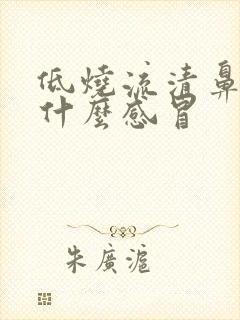 低燒流清鼻
什麼感冒
朱廣滬